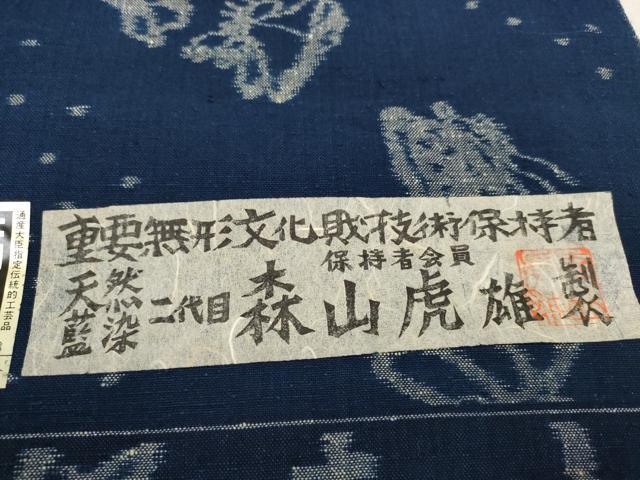 重要無形文化財技術保持者
保持者会員
天然藍染 二代目 森山虎雄製
通産大臣指定伝統的工芸品